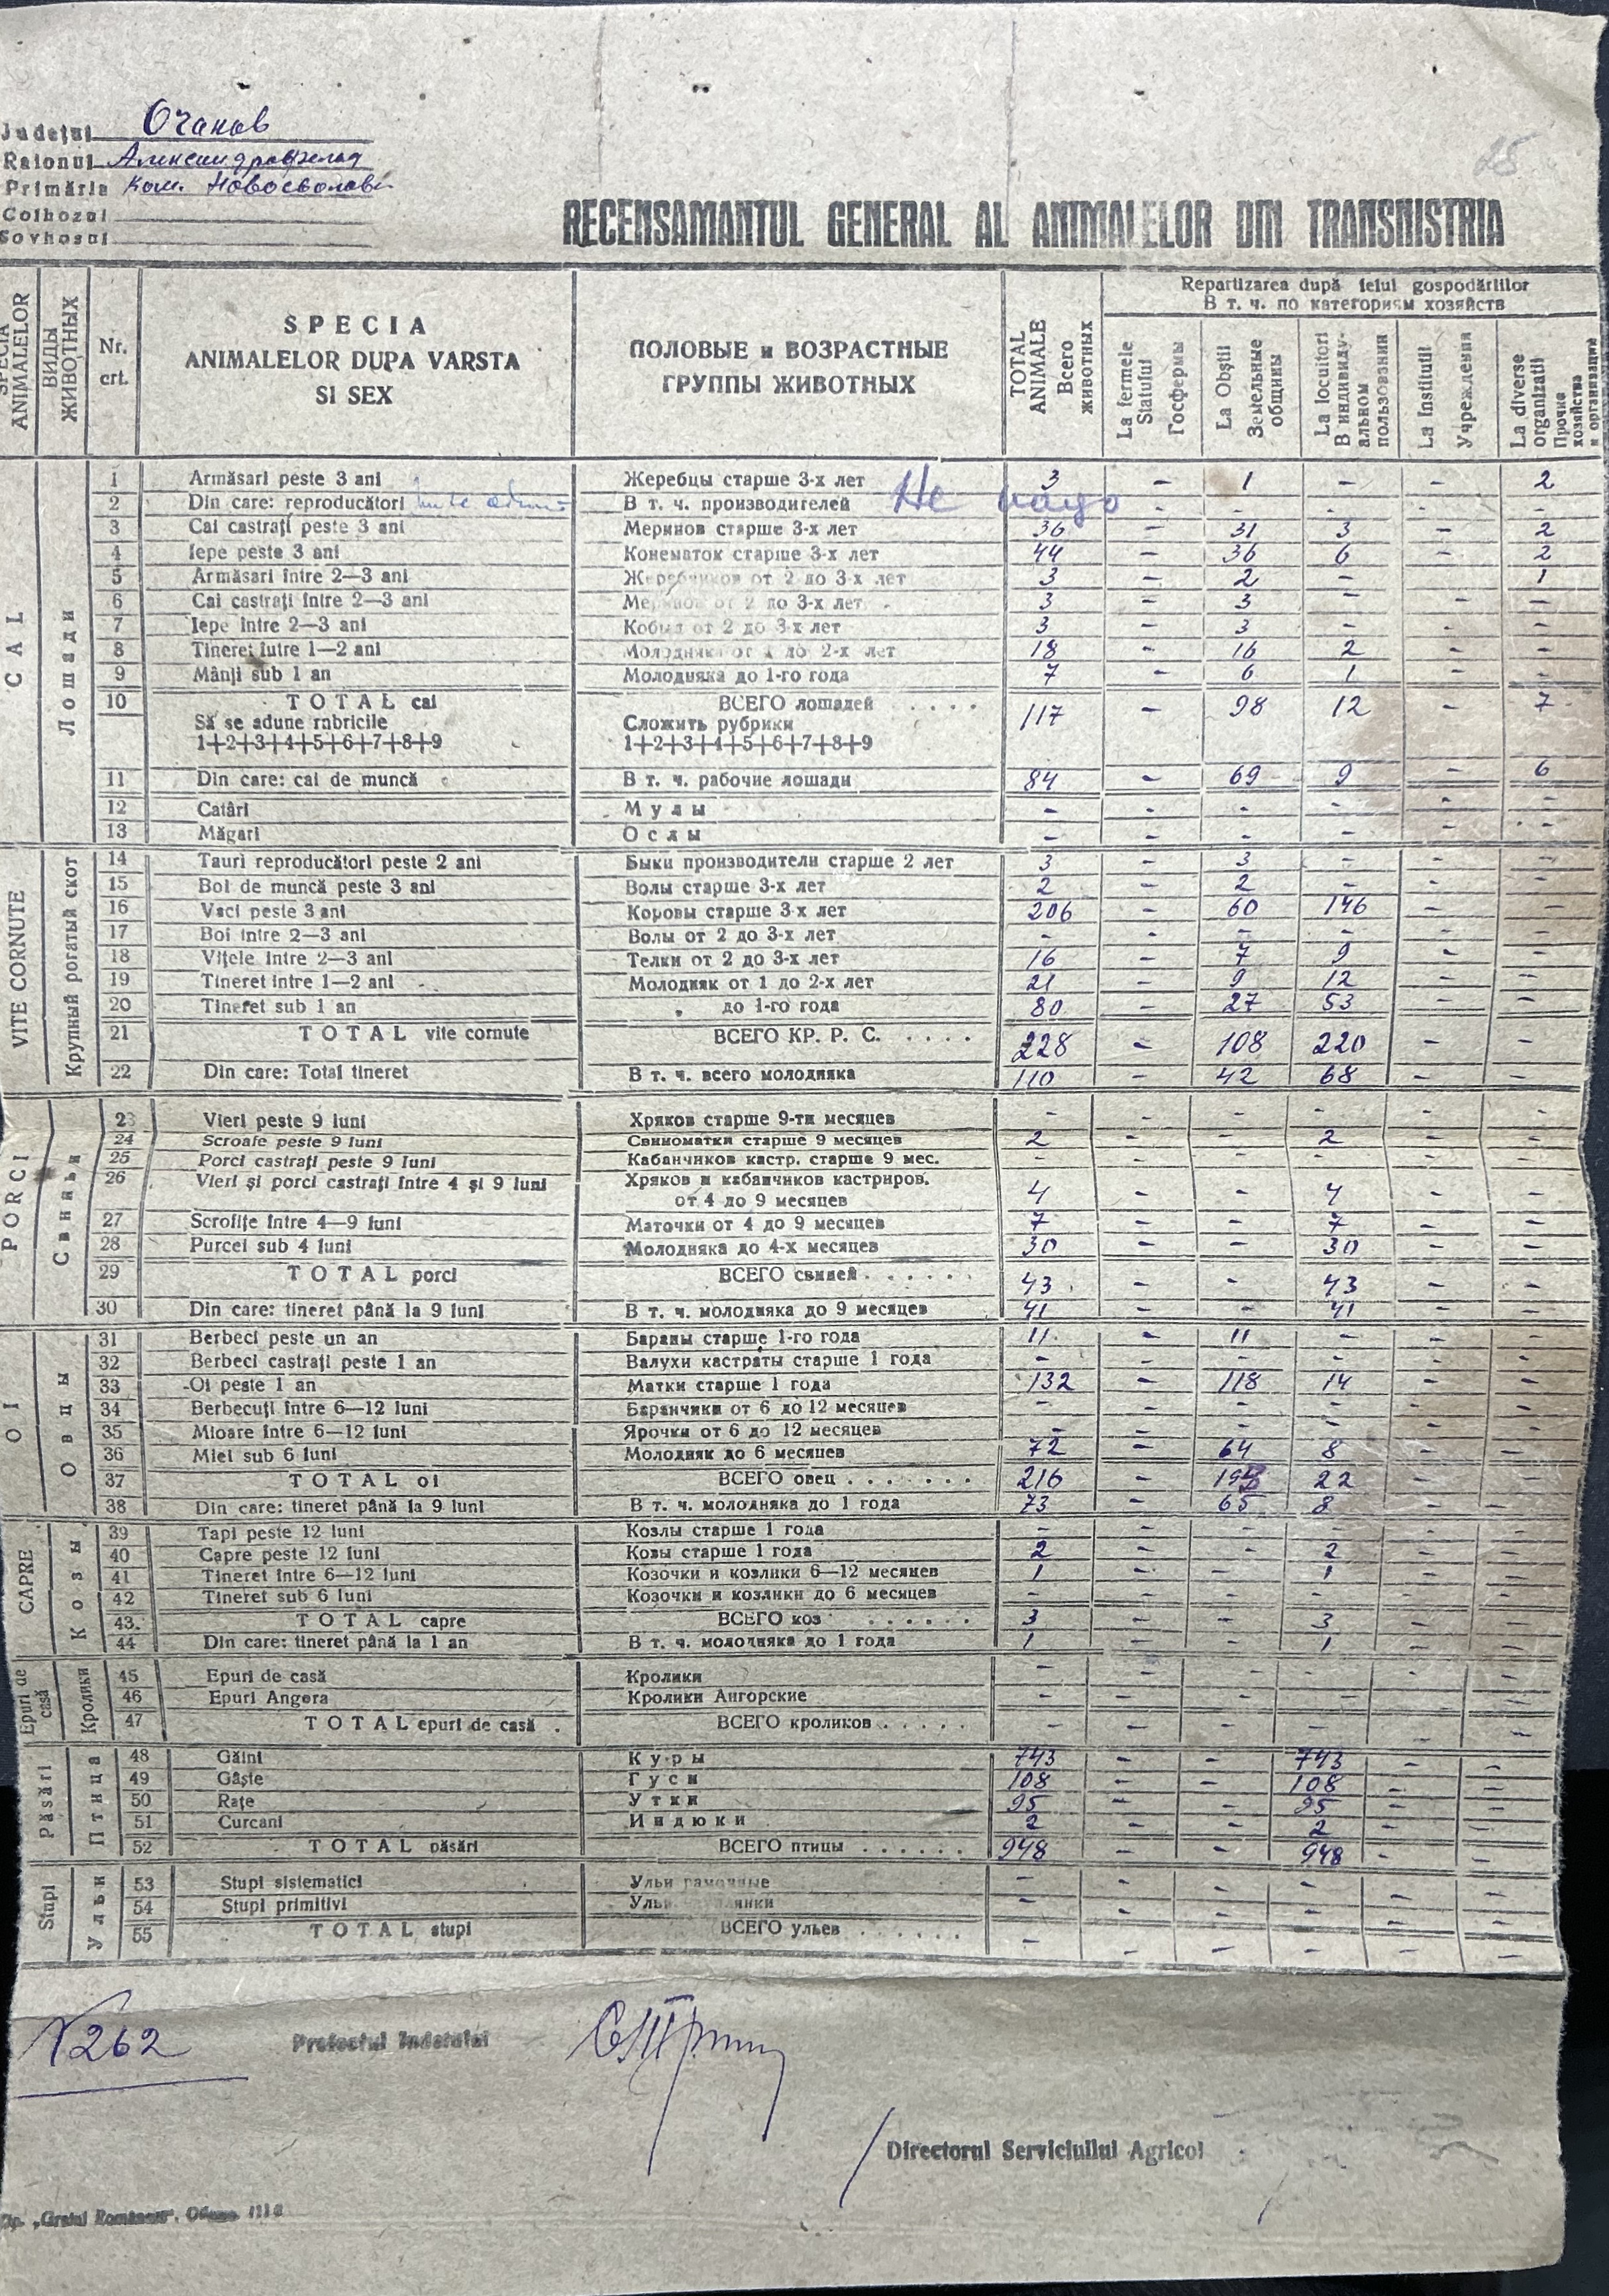 25
Județul Очаков
Raionul Александрофельд
Primăria Ком.
Colhozul
Sovhosul
RECENSAMANTUL GENERAL AL ANIMALELOR DIN TRANSNISTRIA
SPECIA ANIMALELOR
ВИДЫ ЖИВОТНЫХ
Nr. crt.
SPECIA ANIMALELOR DUPA VARSTA SI SEX
ПОЛОВЫЕ и ВОЗРАСТНЫЕ ГРУППЫ ЖИВОТНЫХ
TOTAL ANIMALE Всего животных
Repartizarea după felul gospodăriilor
В т. ч. по категориям хозяйств
La fermele Statului Госфермы
La Obștii Земельные общины
La locuitori В индивиду- альном пользовании
La Institutii Учреждения
La diverse organizatii Прочие хозяйства и организации
CAL Лошади
1 Armăsari peste 3 ani Жеребцы старше 3-х лет 3 - 1 - - 2
2 Din care: reproducători В т. ч. производителей Не надо - - - - - -
3 Cai castrați peste 3 ani Меринов старше 3-х лет 36 - 31 3 - 2
4 Iepe peste 3 ani Конематок старше 3-х лет 44 - 36 6 - 2
5 Armăsari intre 2—3 ani Жеребчиков от 2 до 3-х лет 3 - 2 - - 1
6 Cai castrați intre 2—3 ani Меринов от 2 до 3-х лет 3 - 3 - - -
7 Iepe intre 2—3 ani Кобыл от 2 до 3-х лет 3 - 3 - - -
8 Tineret iutre 1—2 ani Молодняка от 1 до 2-х лет 18 - 16 2 - -
9 Mânji sub 1 an Молодняка до 1-го года 7 - 6 1 - -
10 TOTAL cai ВСЕГО лошадей . . . . 117 - 98 12 - 7
Să se adune rubricile Сложить рубрики
1+2+3+4+5+6+7+8+9 1+2+3+4+5+6+7+8+9
11 Din care: cai de muncă В т. ч. рабочие лошади 84 - 69 9 - 6
12 Catâri Мулы - - - - - -
13 Măgari Ослы - - - - - -
VITE CORNUTE Крупный рогатый скот
14 Tauri reproducători peste 2 ani Быки производители старше 2 лет 3 - 3 - - -
15 Boi de muncă peste 3 ani Волы старше 3-х лет 2 - 2 - - -
16 Vaci peste 3 ani Коровы старше 3-х лет 206 - 60 146 - -
17 Boi intre 2—3 ani Волы от 2 до 3-х лет - - - - - -
18 Vițele intre 2—3 ani Телки от 2 до 3-х лет 16 - 7 9 - -
19 Tineret intre 1—2 ani Молодняк от 1 до 2-х лет 21 - 9 12 - -
20 Tineret sub 1 an „ до 1-го года 80 - 27 53 - -
21 TOTAL vite cornute ВСЕГО КР. Р. С. . . . . 228 - 108 220 - -
22 Din care: Total tineret В т. ч. всего молодняка 110 - 42 68 - -
PORCI Свиньи
23 Vieri peste 9 luni Хряков старше 9-ти месяцев - - - - - -
24 Scroafe peste 9 luni Свиноматки старше 9 месяцев 2 - - 2 - -
25 Porci castrați peste 9 luni Кабанчиков кастр. старше 9 мес. - - - - - -
26 Vieri și porci castrați intre 4 și 9 luni Хряков и кабанчиков кастриров.
от 4 до 9 месяцев 4 - - 4 - -
27 Scrofițe intre 4—9 luni Маточки от 4 до 9 месяцев 7 - - 7 - -
28 Purcei sub 4 luni Молодняка до 4-х месяцев 30 - - 30 - -
29 TOTAL porci ВСЕГО свиней . . . . . . 43 - - 43 - -
30 Din care: tineret până la 9 luni В т. ч. молодняка до 9 месяцев 41 - - 41 - -
OI Овцы
31 Berbeci peste un an Бараны старше 1-го года 11 - 11 - - -
32 Berbeci castrați peste 1 an Валухи кастраты старше 1 года - - - - - -
33 Oi peste 1 an Матки старше 1 года 132 - 118 14 - -
34 Berbecuți intre 6—12 luni Баранчики от 6 до 12 месяцев - - - - - -
35 Mioare intre 6—12 luni Ярочки от 6 до 12 месяцев - - - - - -
36 Miei sub 6 luni Молодняк до 6 месяцев 72 - 64 8 - -
37 TOTAL oi ВСЕГО овец . . . . . . . 216 - 22 - -
38 Din care: tineret până la 9 luni В т. ч. молодняка до 1 года 73 - 65 8 - -
CAPRE Козы
39 Tapi peste 12 luni Козлы старше 1 года - - - - - -
40 Capre peste 12 luni Козы старше 1 года 2 - - 2 - -
41 Tineret intre 6—12 luni Козочки и козлики 6—12 месяцев 1 - - 1 - -
42 Tineret sub 6 luni Козочки и козлики до 6 месяцев - - - - - -
43. TOTAL capre ВСЕГО коз . . . . . . 3 - - 3 - -
44 Din care: tineret până la 1 an В т. ч. молодняка до 1 года 1 - - 1 - -
Epuri de casă Кролики
45 Epuri de casă Кролики - - - - - -
46 Epuri Angora Кролики Ангорские - - - - - -
47 TOTAL epuri de casă . ВСЕГО кроликов . . . . . - - - - - -
Păsări Птица
48 Găini Куры 743 - - 743 - -
49 Gâște Гуси 108 - - 108 - -
50 Rațe Утки 95 - - 95 - -
51 Curcani Индюки 2 - - 2 - -
52 TOTAL păsări ВСЕГО птицы . . . . . . 948 - - 948 - -
Stupi Ульи
53 Stupi sistematici Ульи рамочные - - - - - -
54 Stupi primitivi Ульи - - - - - -
55 TOTAL stupi ВСЕГО ульев . . . . . . - - - - - -
N262 Prefectul Județului
Directorul Serviciului Agricol
Tip. „Graiul Românesc“,